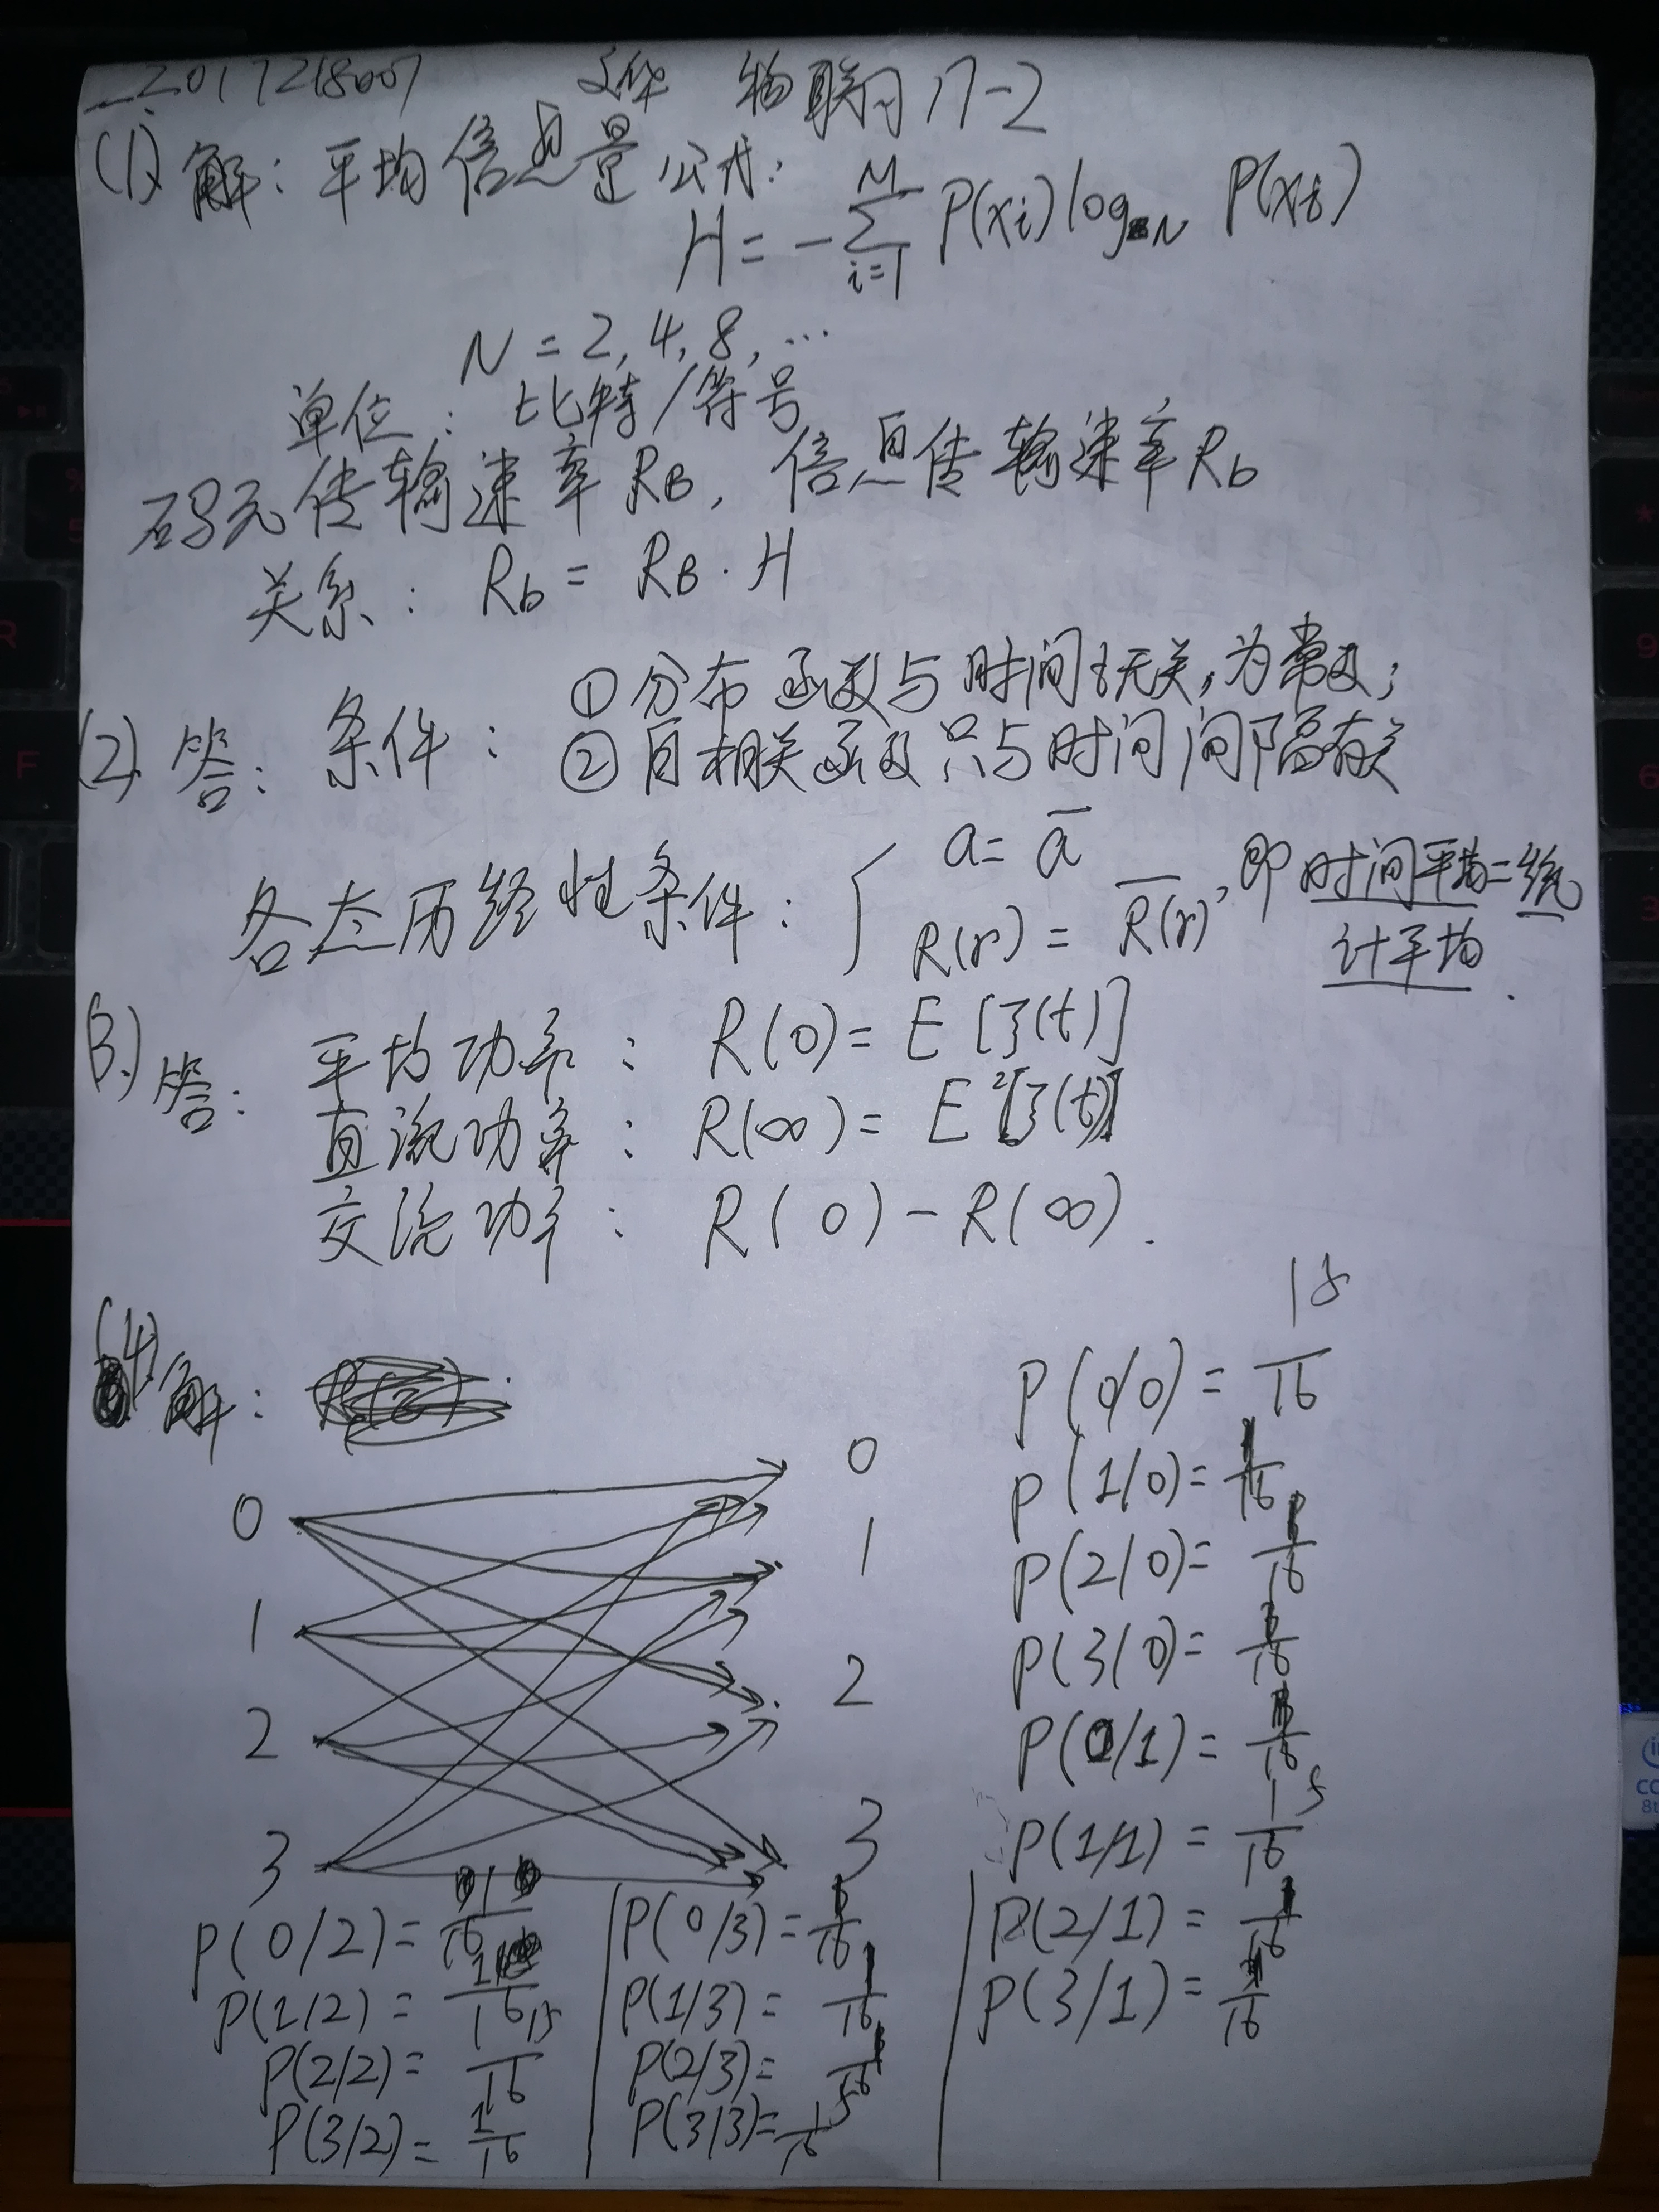 2017218007 物联网17-2
(1) 解: 平均信息量公式:
H = -∑_{i=1}^{M} P(xi) log_N P(xi)
N = 2, 4, 8, …
单位: 比特/符号
码元传输速率RB, 信息传输速率Rb
关系: Rb = RB · H
(2) 答: 条件: ①分布函数与时间t无关,为常数;
②自相关函数只与时间间隔有关
各态历经性条件: { a = ā
R(τ) = \overline{R(τ)}, 即时间平均=统
计平均.
(3) 答: 平均功率: R(0) = E[ξ(t)]
直流功率: R(∞) = E²[ξ(t)]
交流功率: R(0) - R(∞).
(4) 解:
0
1
2
3
0
1
2
3
P(0/0) = 15/16
P(1/0) = 1/16
P(2/0) = 1/16
P(3/0) = 1/16
P(0/1) = 1/16
P(1/1) = 15/16
P(2/1) = 1/16
P(3/1) = 1/16
P(0/2) = 1/16
P(1/2) = 1/16
P(2/2) = 15/16
P(3/2) = 1/16
P(0/3) = 1/16
P(1/3) = 1/16
P(2/3) = 1/16
P(3/3) = 15/16